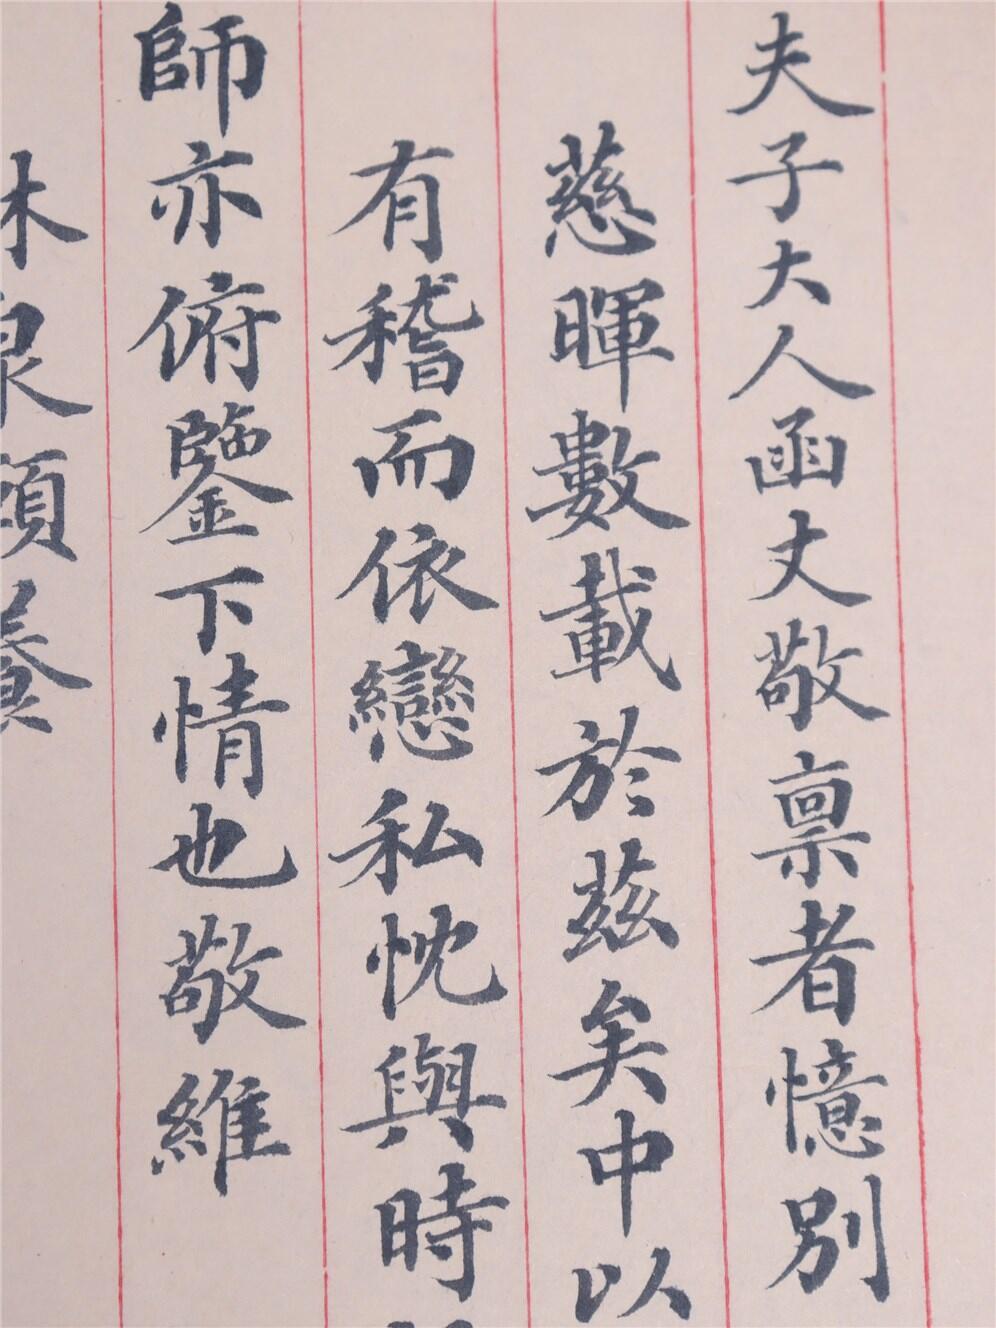 夫子大人函丈敬禀者憶別
慈暉數載於茲矣中以
有稽而依戀私忱與時
師亦俯鑒下情也敬維
林泉頤養